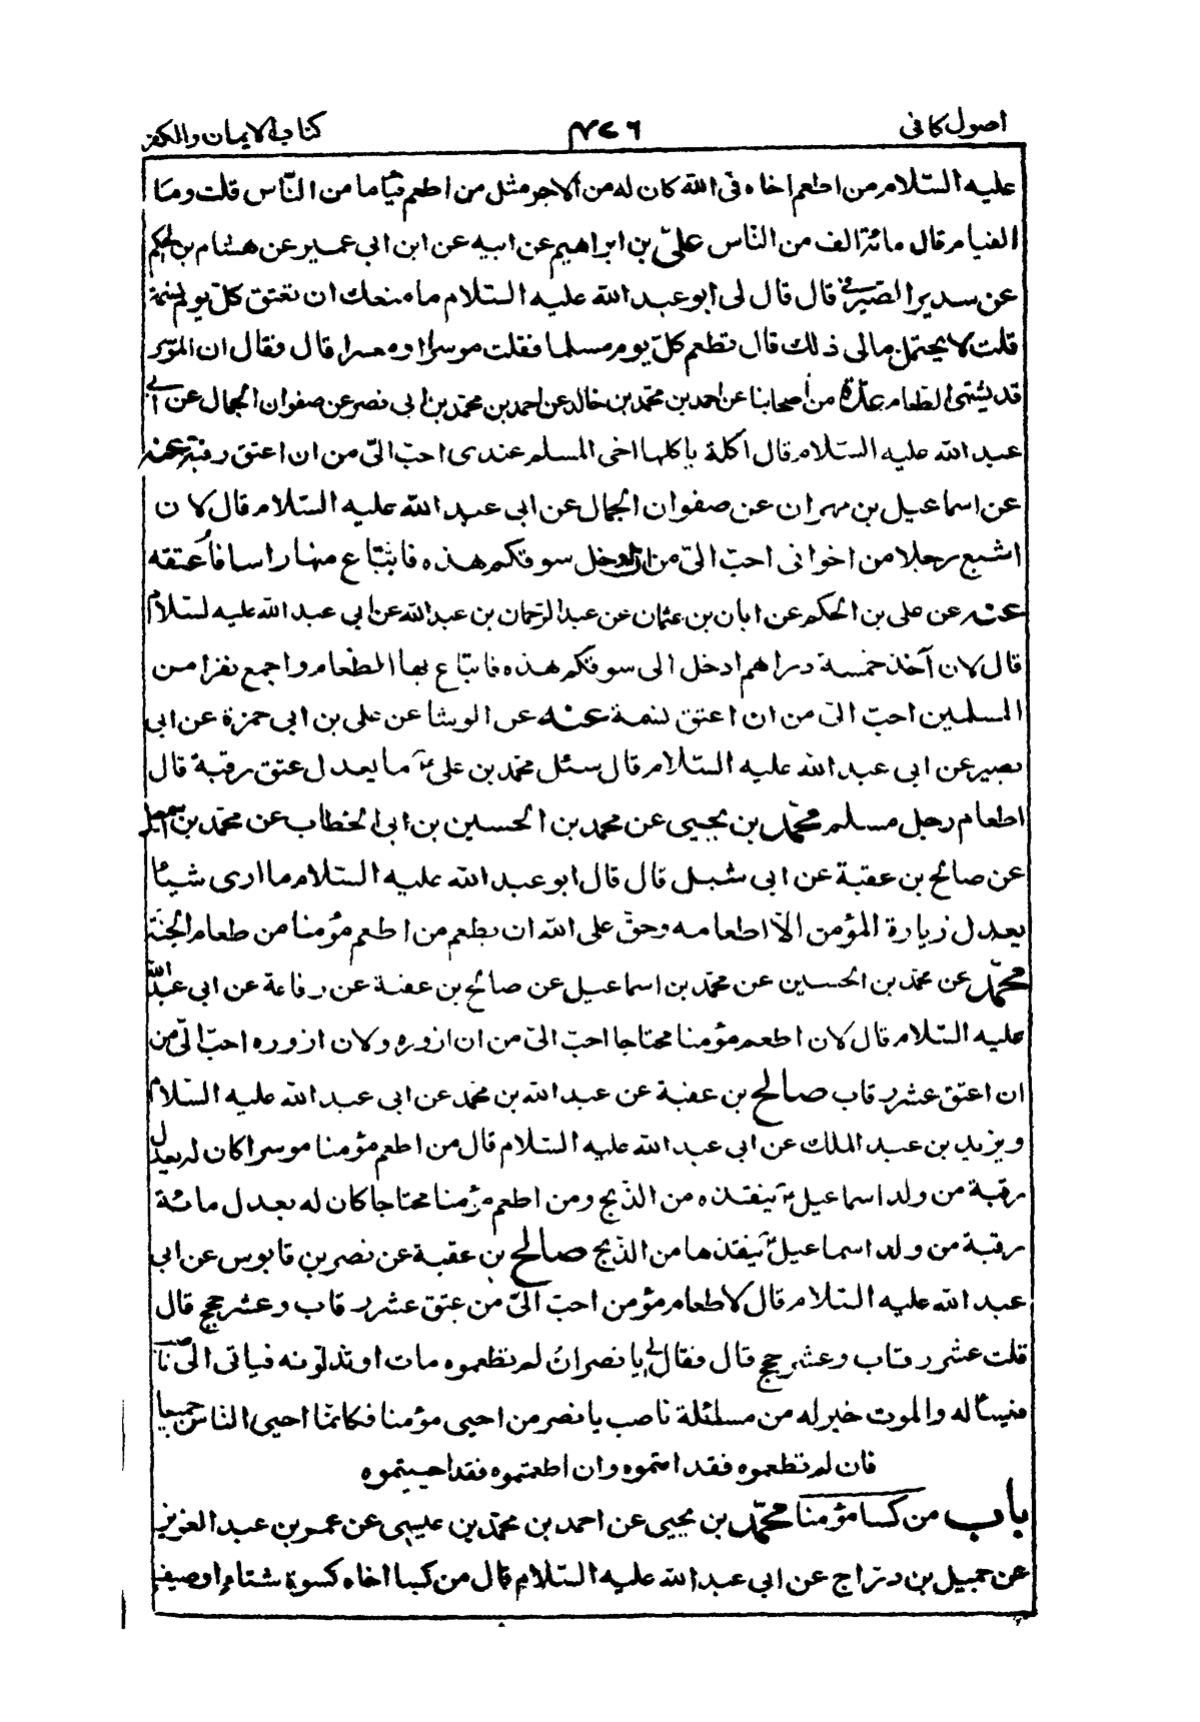 اصول كافى ٤٢٦ كتاب الايمان والكفر
عليه السّلام من اطعم اخاه فى اللّه كان له من الاجر مثل من اطعم فئاما من النّاس قلت وما
الفئام قال مائة الف من النّاس علىّ بن ابراهيم عن ابيه عن ابن ابى عمير عن هشام بن الحكم
عن سدير الصّيرفى قال قال لى ابو عبد اللّه عليه السّلام ما منعك ان تعتق كلّ يوم نسمة
قلت لا يحتمل مالى ذلك قال تطعم كلّ يوم مسلما فقلت موسرا او معسرا قال فقال ان الموسر
قد يشتهى الطعام عدّة من أصحابنا عن احمد بن محمّد بن خالد عن احمد بن محمّد بن ابى نصر عن صفوان الجمال عن أبى
عبد اللّه عليه السّلام قال اكلة ياكلها اخى المسلم عندى احبّ الىّ من ان اعتق رقبة عنه
عن اسماعيل بن مهران عن صفوان الجمال عن ابى عبد اللّه عليه السّلام قال لان
اشبع رجلا من اخوانى احبّ الىّ من ان ادخل سوقكم هذه فابتاع منها راسا فأعتقه
عنه عن على بن الحكم عن ابان بن عثمان عن عبد الرّحمان بن عبد اللّه عن ابي عبد اللّه عليه لسّلام
قال لان آخذ خمسة دراهم ادخل الى سوقكم هذه فابتاع بها الطّعام واجمع نفرا من
المسلمين احبّ الىّ من ان اعتق نسمة عنه عن الوشا عن على بن ابى حمزة عن ابى
بصير عن ابى عبد اللّه عليه السّلام قال سئل محمّد بن على ؑ ما يعدل عتق رقبة قال
اطعام رجل مسلم محمّد بن يحيى عن محمد بن الحسين بن ابى الخطاب عن محمّد بن اسمعيل
عن صالح بن عقبة عن ابى شبل قال قال ابو عبد اللّه عليه السّلام ما ارى شيئا
يعدل زيارة المؤمن الّا اطعامه وحقّ على اللّه ان يطعم من اطعم مؤمنا من طعام الجنّة
محمّد عن محمّد بن الحسين عن محمّد بن اسماعيل عن صالح بن عقبة عن رفاعة عن ابى عبد اللّه
عليه السّلام قال لان اطعم مؤمنا محتاجا احبّ الىّ من ان ازوره ولان ازوره احبّ الىّ من
ان اعتق عشر رقاب صالح بن عقبة عن عبد اللّه بن محمّد عن ابى عبد اللّه عليه السّلام
ويزيد بن عبد الملك عن ابى عبد اللّه عليه السّلام قال من اطعم مؤمنا موسرا كان له يعدل
رقبة من ولد اسماعيل ؑ ينقذه من الذّبح ومن اطعم مؤمنا محتاجا كان له يعدل مائة
رقبة من ولد اسماعيل ؑ ينقذها من الذّبح صالح بن عقبة عن نصر بن قابوس عن ابى
عبد اللّه عليه السّلام قال لاطعام مؤمن احبّ الىّ من عتق عشر رقاب وعشر حجج قال
قلت عشر رقاب وعشر حجج قال فقال لى يا نصر ان لم تطعموه مات او تدلّونه فياتى الى ناصب
فيسأله والموت خير له من مسئلة ناصب يا نصر من احيى مؤمنا فكانّما احيى النّاس جميعا
فان لم تطعموه فقد امتموه وان اطعمتموه فقد احييتموه
باب من كسا مؤمنا محمّد بن يحيى عن احمد بن محمّد بن عيسى عن عمر بن عبد العزيز
عن جميل بن درّاج عن ابى عبد اللّه عليه السّلام قال من كسا اخاه كسوة شتاء او صيف